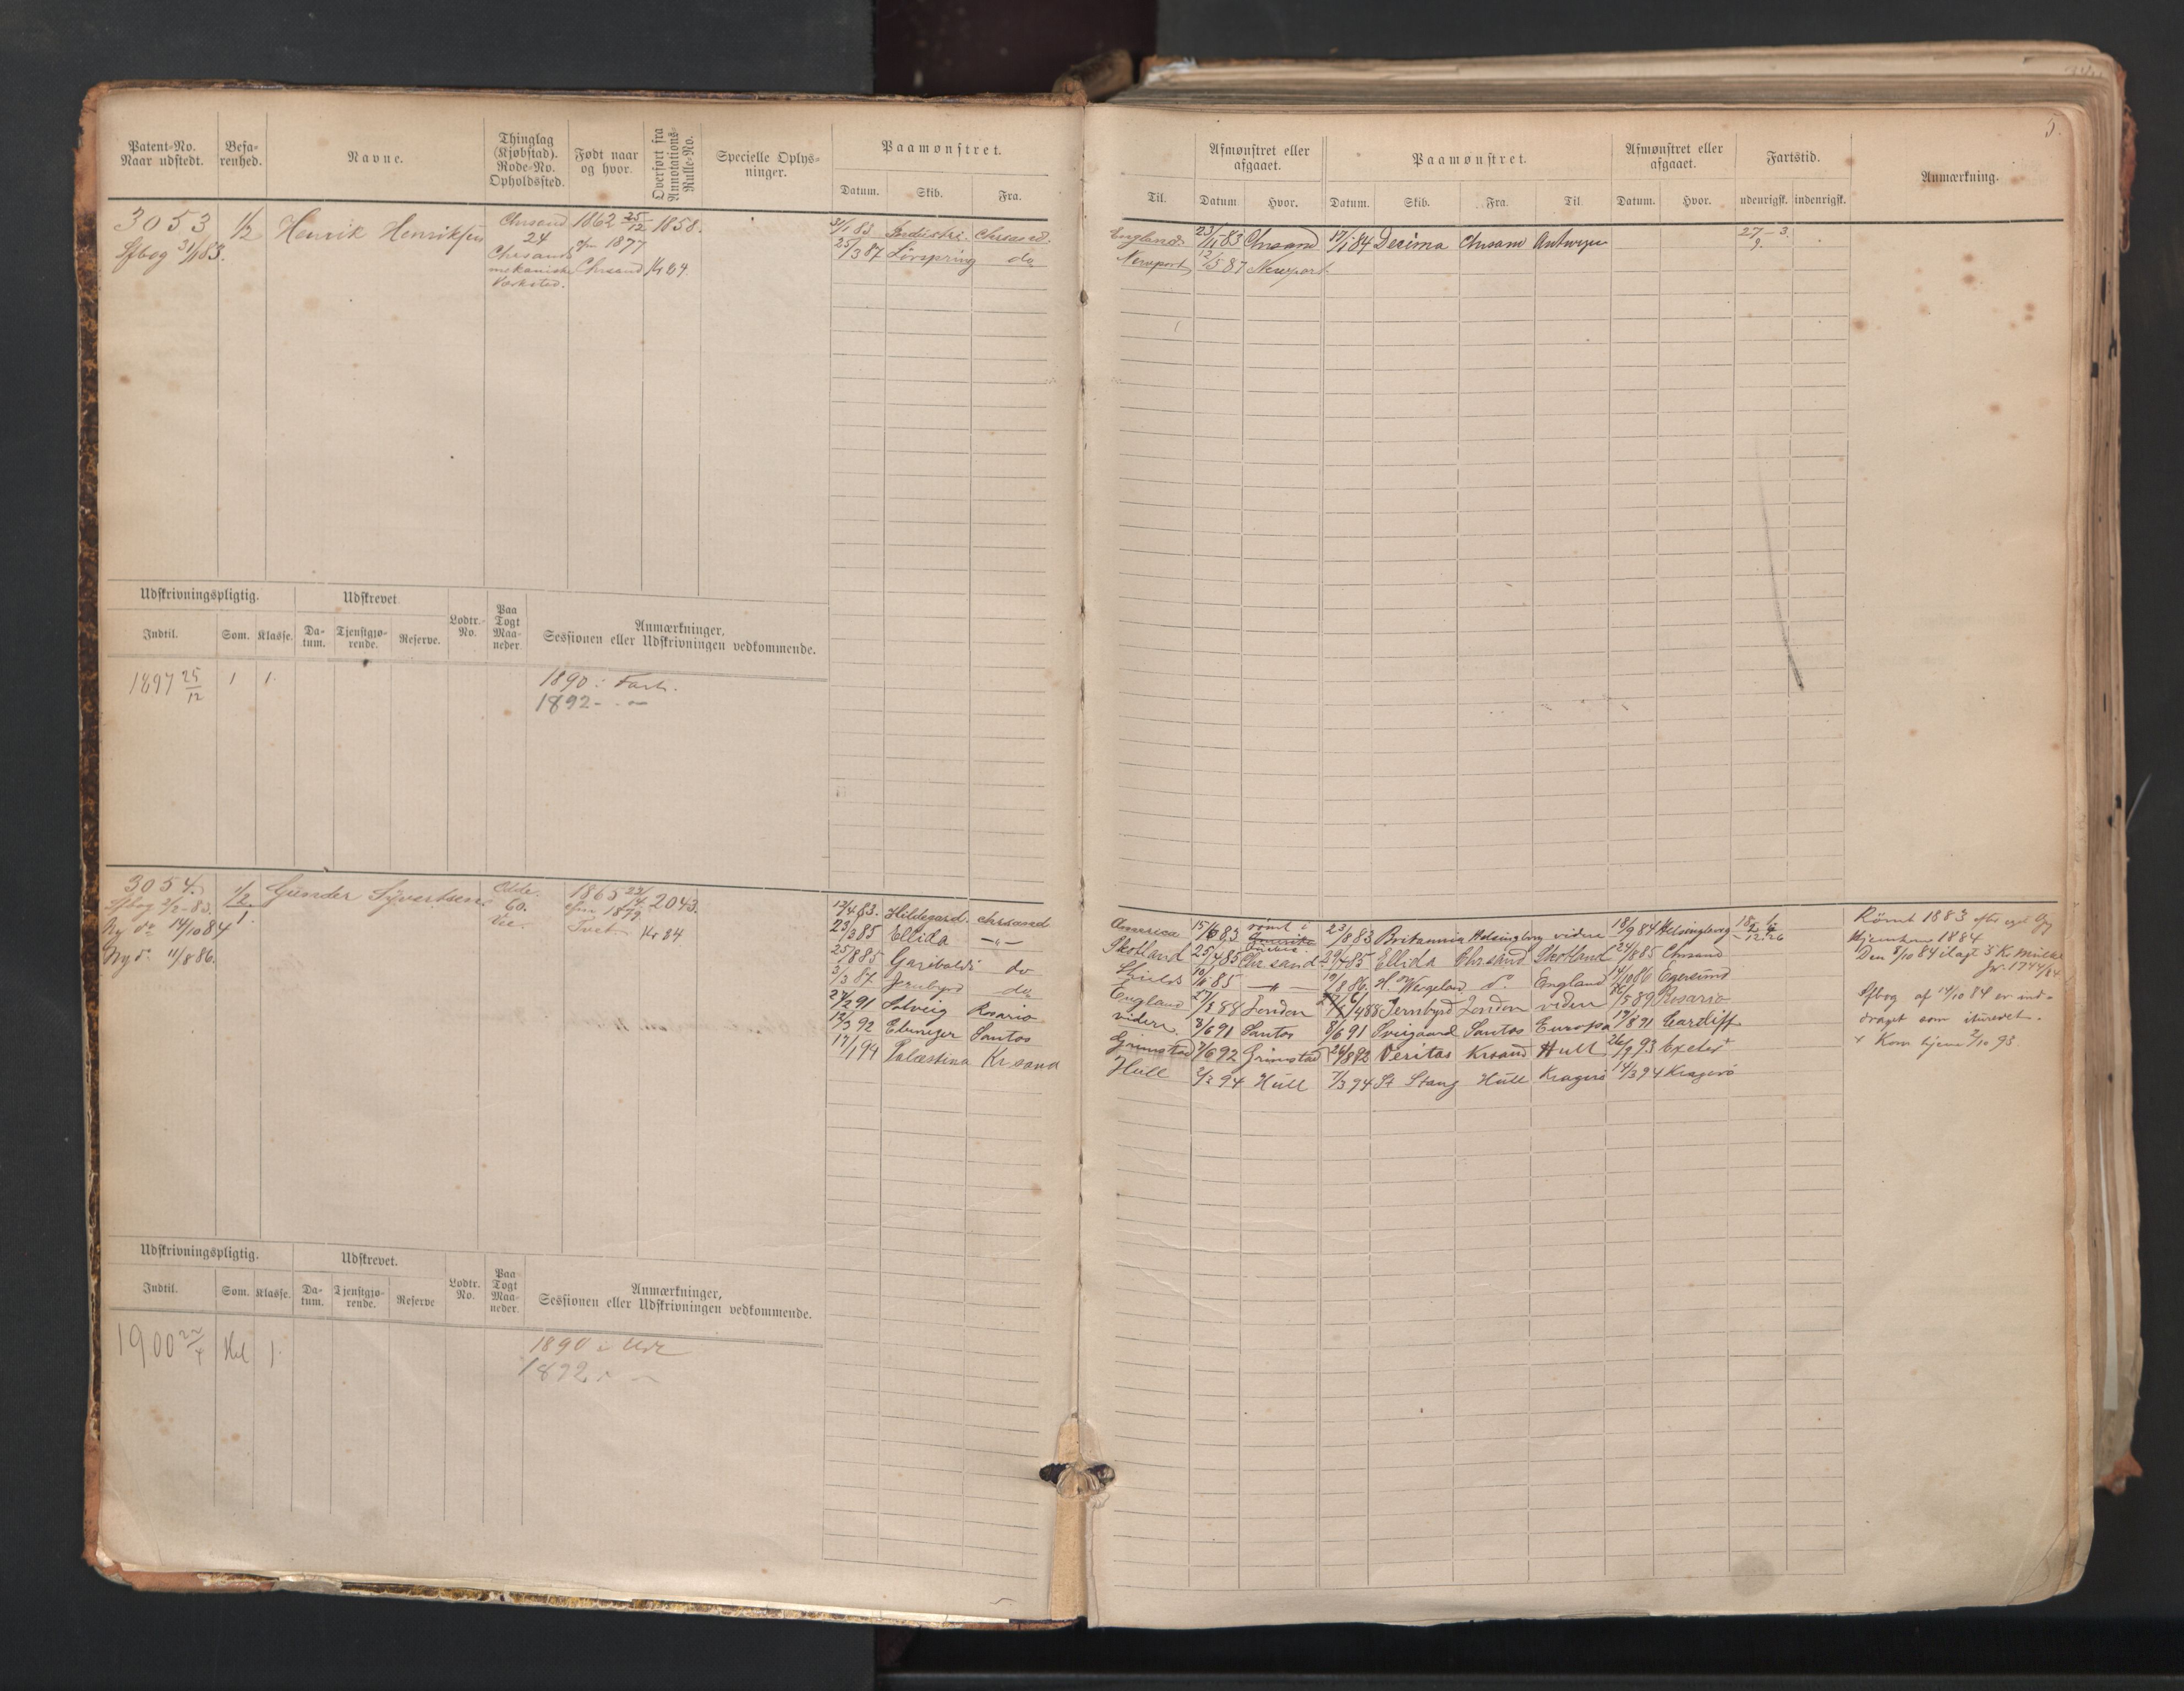 5.
Patent-No. Naar udstedt.
Befa-renhed.
Navne.
Thinglag (Kjøbstad). Rode-No. Opholdssted.
Født naar og hvor.
Overført fra Annotations-Rulle-No.
Specielle Oplys-ninger.
Paamønstret.
Datum. Skib. Fra.
Til.
Afmønstret eller afgaaet.
Datum Hvor.
Paamønstret.
Datum. Skib. Fra. Til
Afmønstret eller afgaaet.
Datum. Hvor.
Fartstid.
udenrigsk. indenrigsk.
Anmærkning.
3053 1/2 Henrik Henriksen Chrsand 1862 25/12 1858.
Sfbog 31/1 83. 24 1877
Chrsands
mekaniske Chrsand Kr 24.
Værksted.
31/1 83 Industri. Chrsand. England 23/11 83 Chrsand 17/1 84 Decima Chrsand Antwerpen 27-3.
25/3 87 Lövspring do Newport 12/5 87 Newport
Udskrivningspligtig. Udskrevet
Indtil. Som. Klasse. Da-tum. Tjenstgjø-rende. Reserve. Lodtr.-No. Paa Togt Maa-neder
Anmærkninger, Sessionen eller Udskrivningen vedkommende.
1897 25/12 1 1. 1890: Fart.
1892 - -
3054. 1/2 Gunder Syvertsen Odde. 1865 22/4 2043.
Sfbog 2/2-83. 1. 60. 1879.
Ny do 14/10 84 Vie. Tvet Kr 84
Ny do 11/8 86.
12/4 83. Hildegard. Chrsand America 15/6 83 rømt i Amerika 23/8 83 Britannia Helsingborg videre 18/9 84 Helsingborg
23/3 85 Ellida -"- Skotland 25/4 85 Chrsand 29/4 85 Ellida Chrsand Skotland 24/8 85 Chrsand
25/8 85 Garibaldi do Shields 10/11 85 -"- 19/8 86. H. Wergeland do England 14/10 86 Egersund
3/3 87. Jernbyrd do England 27/3 88 London 6/4 88 Jernbyrd London videre /5 89 Rosario
27/2 91 Solveig Rosario videre. 8/6 91 Santos 8/6 91 Sviigaard Santos Europa 17/8 91 Cardiff
12/3 92 Ebenezer Santos Grimstad 7/6 92 Grimstad 26/8 92 Veritas Krsand Hull 26/9 93 Exeter +
17/1 94 Palæstina Krsand Hull 2/3 94 Hull 7/3 94 St Stang Hull Kragerö 14/3 94 Kragerö
Römt 1883 efter eget Opg
Hjemkom 1884
Den 8/10 84 ilagt 3 Kr Mulct
Jr. 1744/84
Sfbog af 14/10 84 er ind-
draget som itürevet.
+ Kom hjem 2/10 93.
Udskrivningspligtig. Udskrevet.
Indtil. Som. Klasse. Da-tum. Tjenstgjø-rende. Reserve Lodtr. No. Paa Togt Maa-neder.
Anmærkninger, Sessionen eller Udskrivningen vedkommende.
1900 22/4 Hel 1. 1890 : Udr
1892